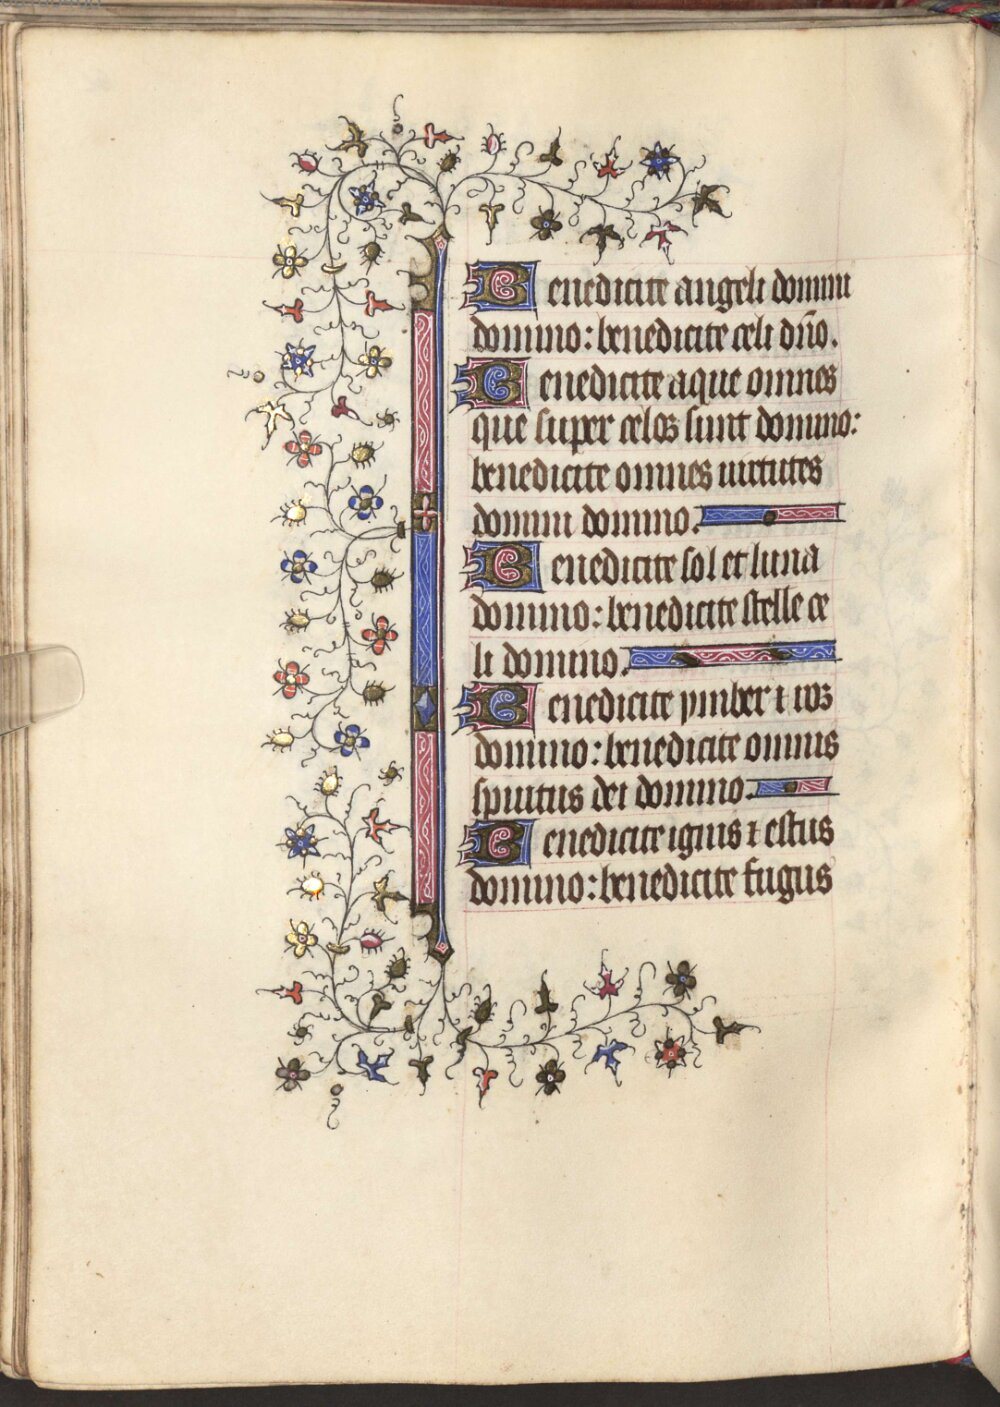 Benedicite angeli domini
domino: benedicite celi dño.
Benedicite aque omnes
que super celos sunt domino:
benedicite omnes uirtutes
domini domino.
Benedicite sol et luna
domino: benedicite stelle ce
li domino.
Benedicite ymber ⁊ ros
domino: benedicite omnis
spiritus dei domino.
Benedicite ignis ⁊ estus
domino: benedicite frigus